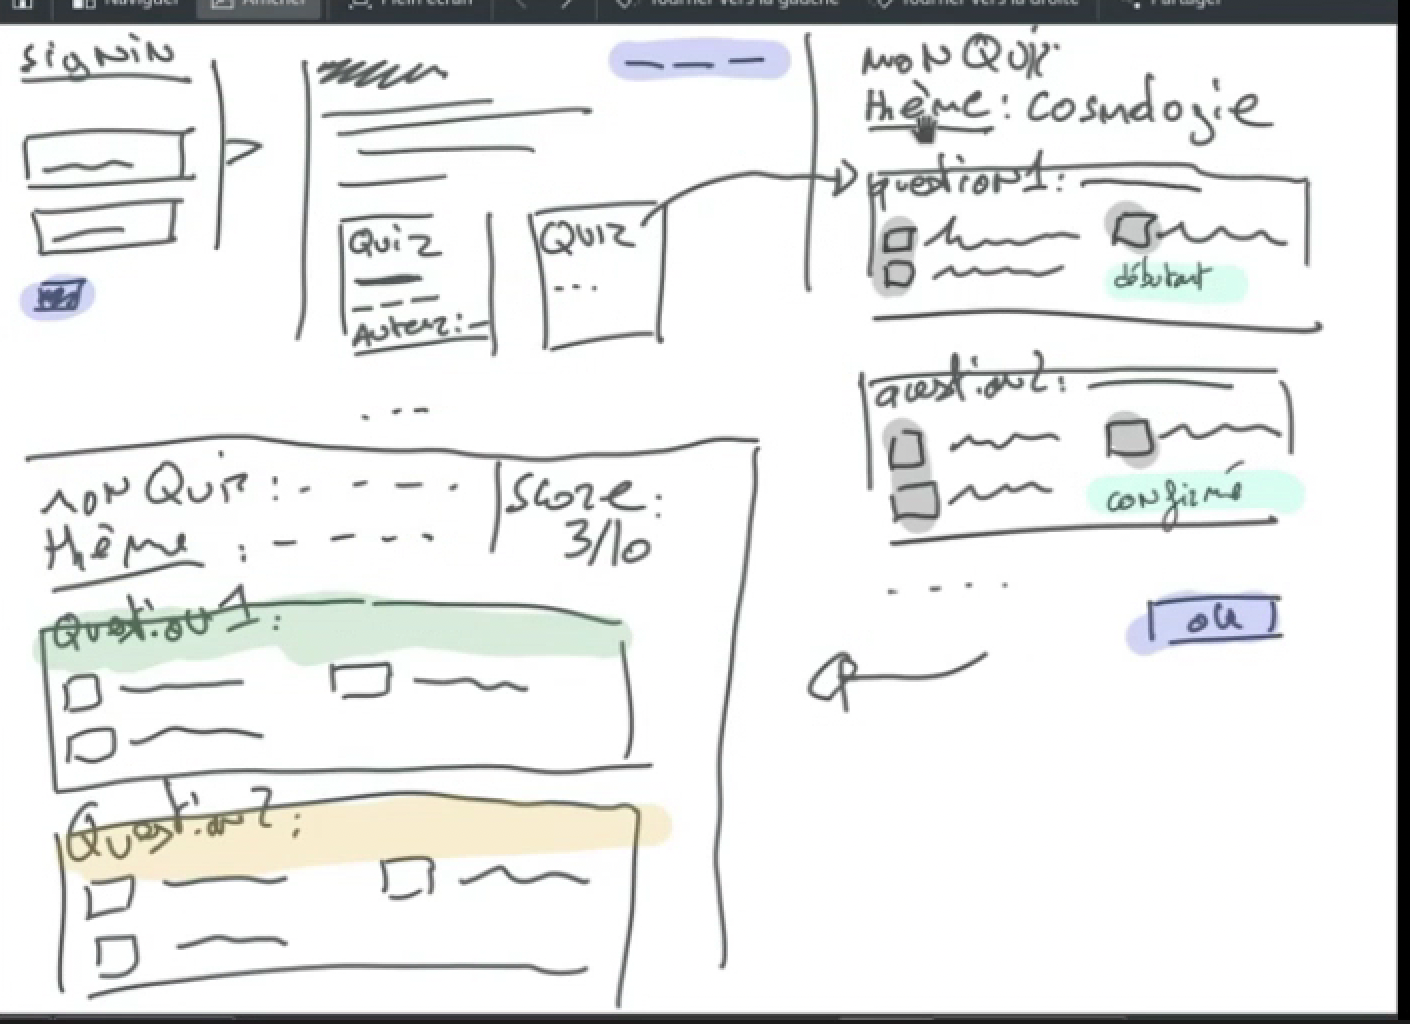 Naviguer
Afficher
Plein écran
Tourner vers la gauche
Tourner vers la droite
Partager
signin
Quiz
Auteur:
QUIZ
...
mon Quiz
thème: cosmologie
question1:
débutant
question2:
confirmé
ok
mon Quiz :
thème :
Score:
3/10
Question 1 :
Question 2 :